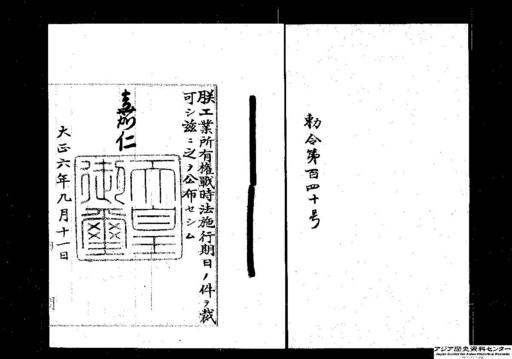 勅令第百四十号
朕工業所有権戦時法施行期日ノ件ヲ裁
可シ茲ニ之ヲ公布セシム
嘉仁
天皇
御璽
大正六年九月十一日
アジア歴史資料センター
Japan Center for Asian Historical Records